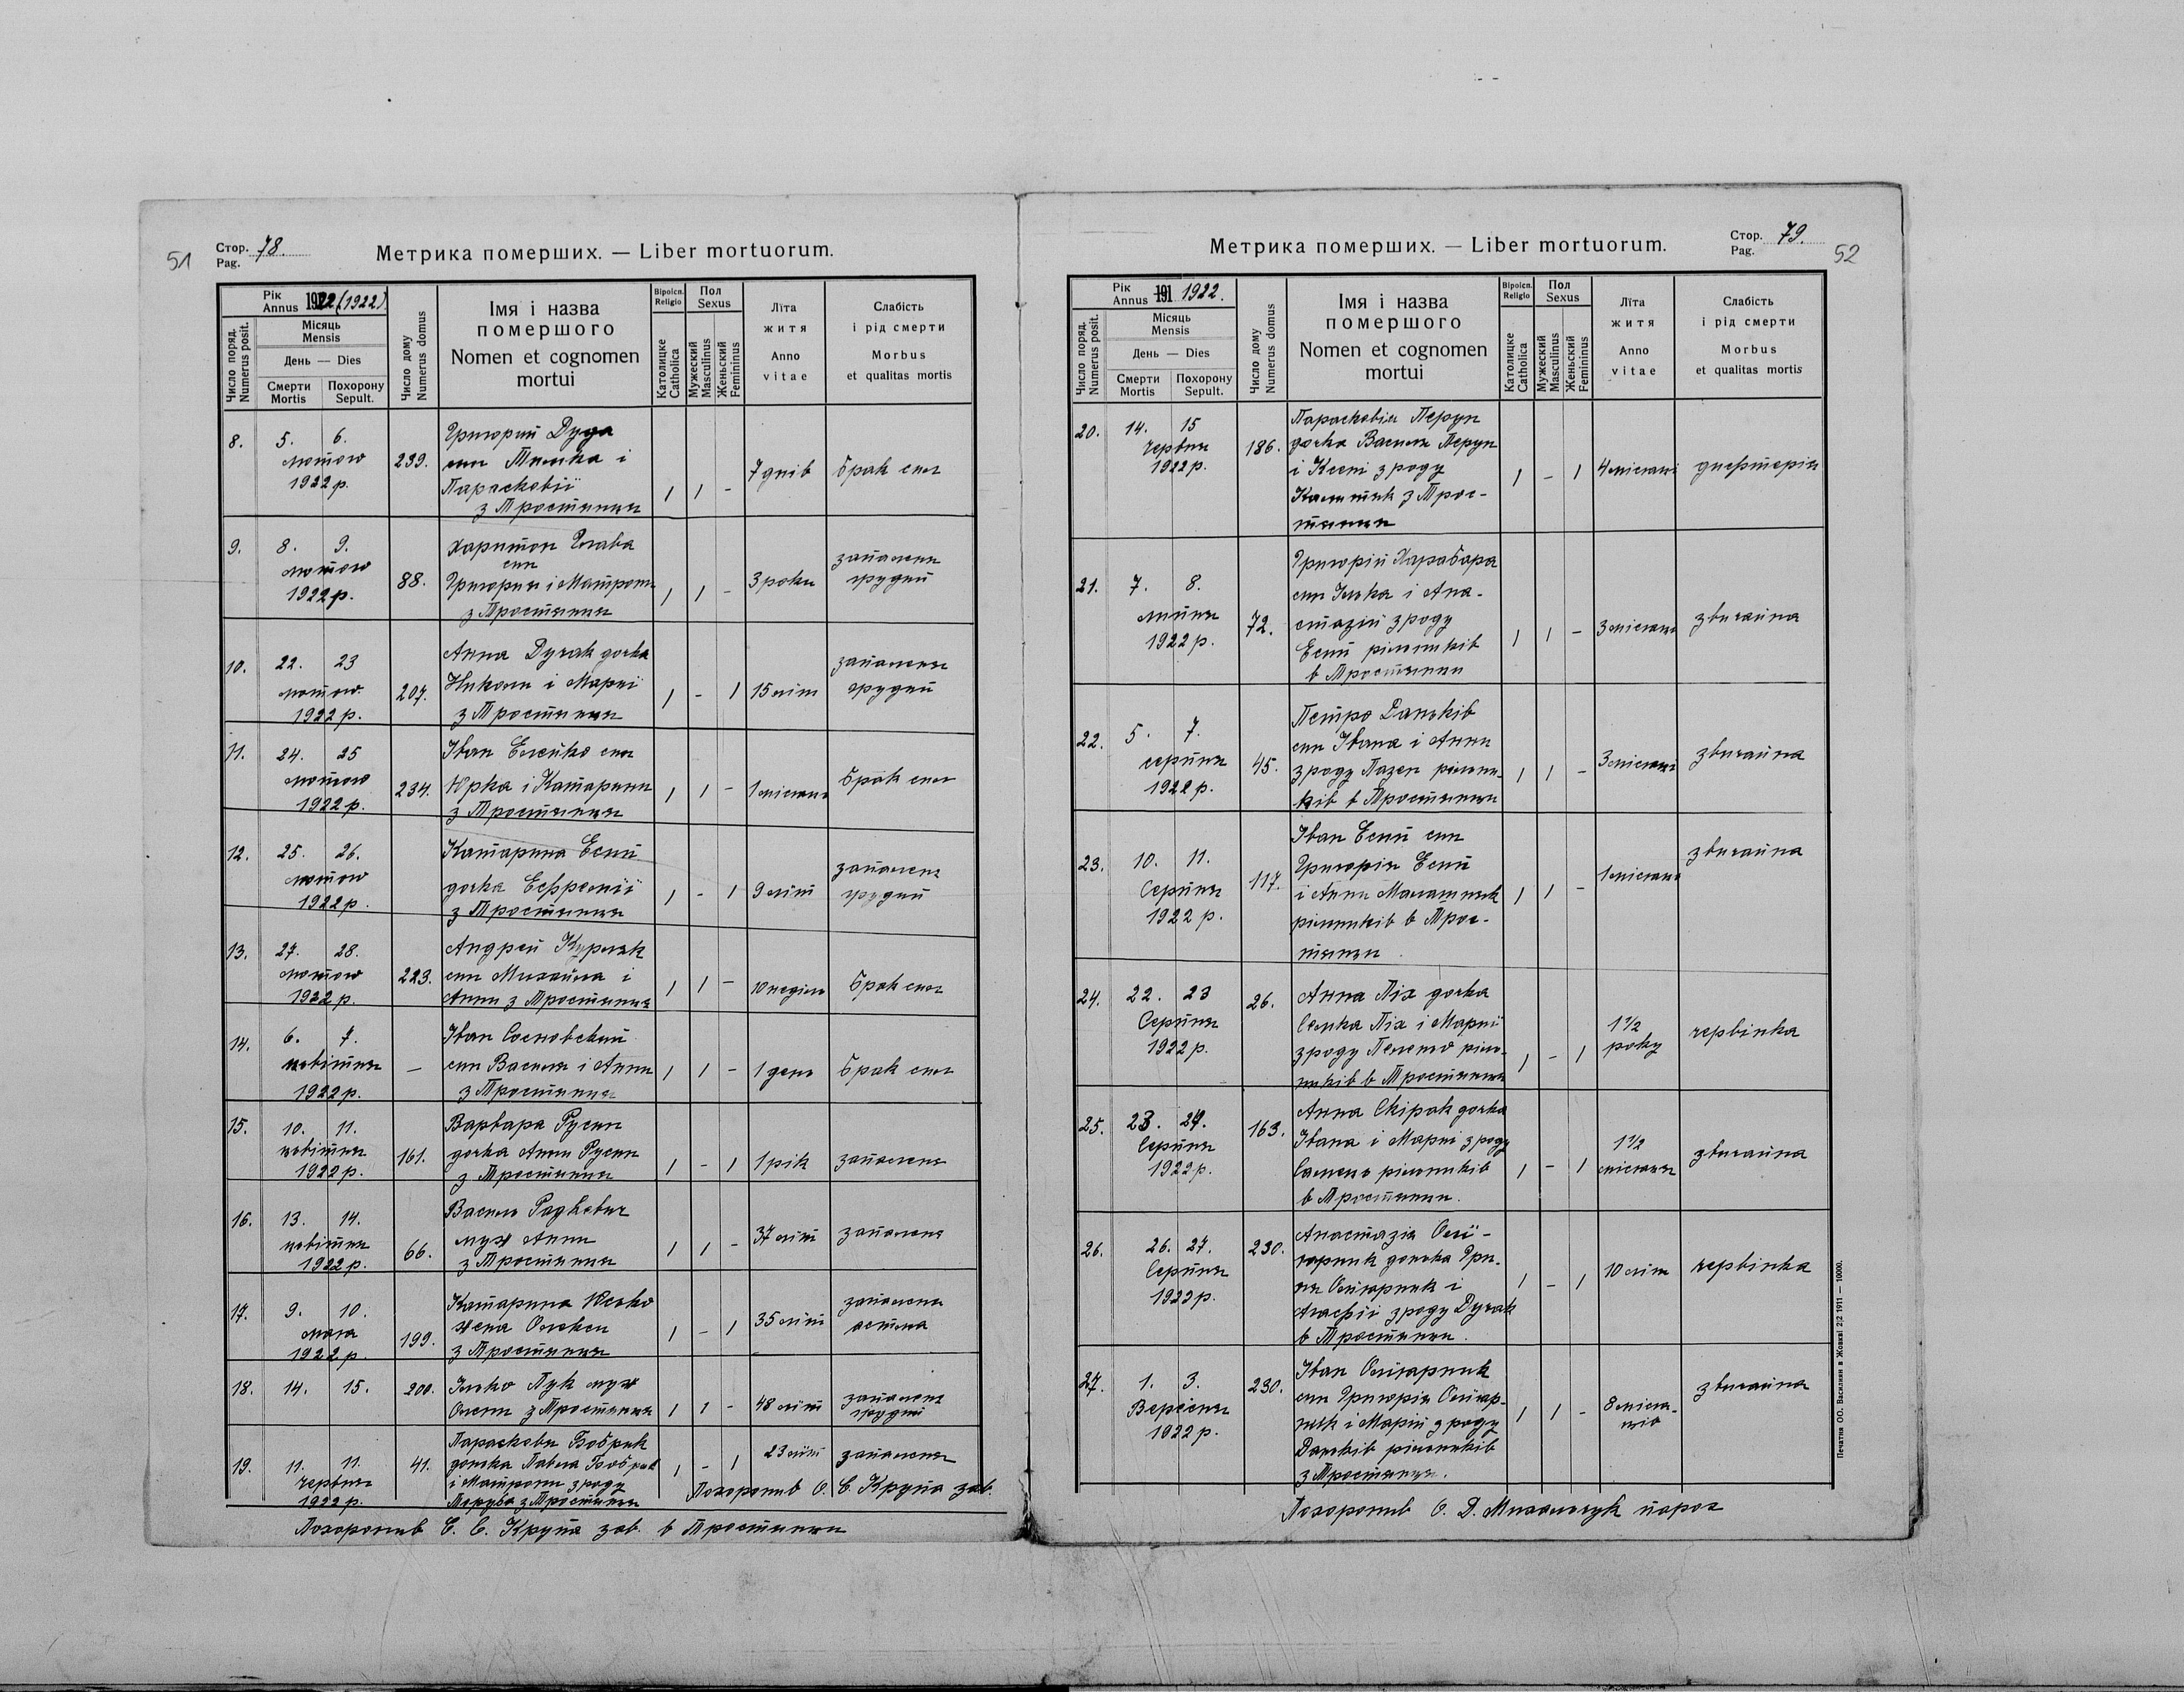 51
Стор. 78.
Pag.
Метрика померших. — Liber mortuorum.
Рік
Annus 1922 (1922)
Місяць
Mensis
День — Dies
Смерти Похорону
Mortis Sepult.
Число поряд.
Numerus posit.
Число дому
Numerus domus
Імя і назва
помершого
Nomen et cognomen
mortui
Віроісп.
Religio
Католицке
Catholica
Пол
Sexus
Мужеский
Masculinus
Женьский
Femininus
Лїта
житя
Anno
vitae
Слабість
і рід смерти
Morbus
et qualitas mortis
8. 5. 6. лютого 1922 р. 239. 1 1 - 7 днів брак сил
Григорий Дуда
син Тимка і
Параскевії
з Тростянця
9. 8. 9. лютого 1922 р. 88. 1 1 - 3 роки запаленя грудий
Харитон Глава
син
Григория і Матрони
з Тростянця
10. 22. 23 лютого 1922 р. 207. 1 - 1 15 літ запаленя грудий
Анна Дучак дочка
Николи і Марії
з Тростянця
11. 24. 25 лютого 1922 р. 234. 1 1 - 1 місяць брак сил
Іван Елейко син
Юрка і Катарини
з Тростянця
12. 25. 26. лютого 1922 р. 1 - 1 9 літ запаленя грудий
Катарина Есип
дочка Ефрозинії
з Тростянця
13. 27. 28. лютого 1922 р. 223. 1 1 - 10 неділь брак сил
Андрей Куриляк
син Михайла і
Анни з Тростянця
14. 6. 7. цвітня 1922 р. — 1 1 - 1 день брак сил
Іван Сосновский
син Василя і Анни
з Тростянця
15. 10. 11. цвітня 1922 р. 161. 1 - 1 1 рік запаленя
Варвара Русин
дочка Анни Русин
з Тростянця
16. 13. 14. цвітня 1922 р. 66. 1 1 - 37 літ запаленя
Василь Радкевич
муж Анни
з Тростянця
17. 9. 10. мая 1922 р. 199. 1 - 1 35 літ запаленя астма
Катарина
жена Олекси
з Тростянця
18. 14. 15. 200. 1 1 - 48 літ запаленя грудий
Ілько Пук муж
Олени з Тростянця
19. 11. 11. червня 1922 р. 41. 1 - 1 23 літ запаленя
Параскева Бобрик
донька Павла Бобрик
і Матрони з роду
з Тростянця
Похоронив О. Е. Крупа зав.
Похоронив Е. Е. Крупа зав. в Тростянци
Метрика померших. — Liber mortuorum.
Стор. 79.
Pag.
52
Рік
Annus 191 1922.
Місяць
Mensis
День — Dies
Смерти Похорону
Mortis Sepult.
Число поряд.
Numerus posit.
Число дому
Numerus domus
Імя і назва
помершого
Nomen et cognomen
mortui
Віроісп.
Religio
Католицке
Catholica
Пол
Sexus
Мужеский
Masculinus
Женьский
Femininus
Лїта
житя
Anno
vitae
Слабість
і рід смерти
Morbus
et qualitas mortis
20. 14. 15 червня 1922 р. 186. 1 - 1 4 місяці дифтерія
Параскевія Перун
дочка Василя Перун
і Ксені з роду
з Трос-
тянця
21. 7. 8. липня 1922 р. 72. 1 1 - 3 місяці звичайна
Григорій Харабара
син Ілька і Ана-
стазії з роду
Есип рільників
в Тростянци
22. 5. 7. серпня 1922 р. 45. 1 1 - 3 місяці звичайна
Петро Даньків
син Івана і Анни
з роду Пазен рільни-
ків в Тростянци
23. 10. 11. Серпня 1922 р. 117. 1 1 - 1 місяць звичайна
Іван Есип син
Григорія Есип
і Анни Маланчук
рільників в Трос-
тянци
24. 22. 23 Серпня 1922 р. 26. 1 - 1 1 1/2 року червінка
Анна Піх дочка
Семка Піх і Марії
з роду рільни-
ників в Тростянци
25. 23. 24. Серпня 1922 р. 163. 1 - 1 1 1/2 місяця звичайна
Анна Скірак дочка
Івана і Марії з роду
рільників
в Тростянци.
26. 26. 27. Серпня 1922 р. 230. 1 - 1 10 літ червінка
Анастазія Олій-
арник донька Гри-
ня Оліярник і
Агафії з роду Дучак
в Тростянци.
27. 1. 3. Вересня 1922 р. 230. 1 1 - 8 місяців звичайна
Іван Оліярник
син Григорія Оліяр-
ник і Марії з роду
Даньків рільників
з Тростянця.
Похоронив О. Д. Михальчук парох
Печатня ОО. Василиян в Жовкві 2|2 1911 — 10000.